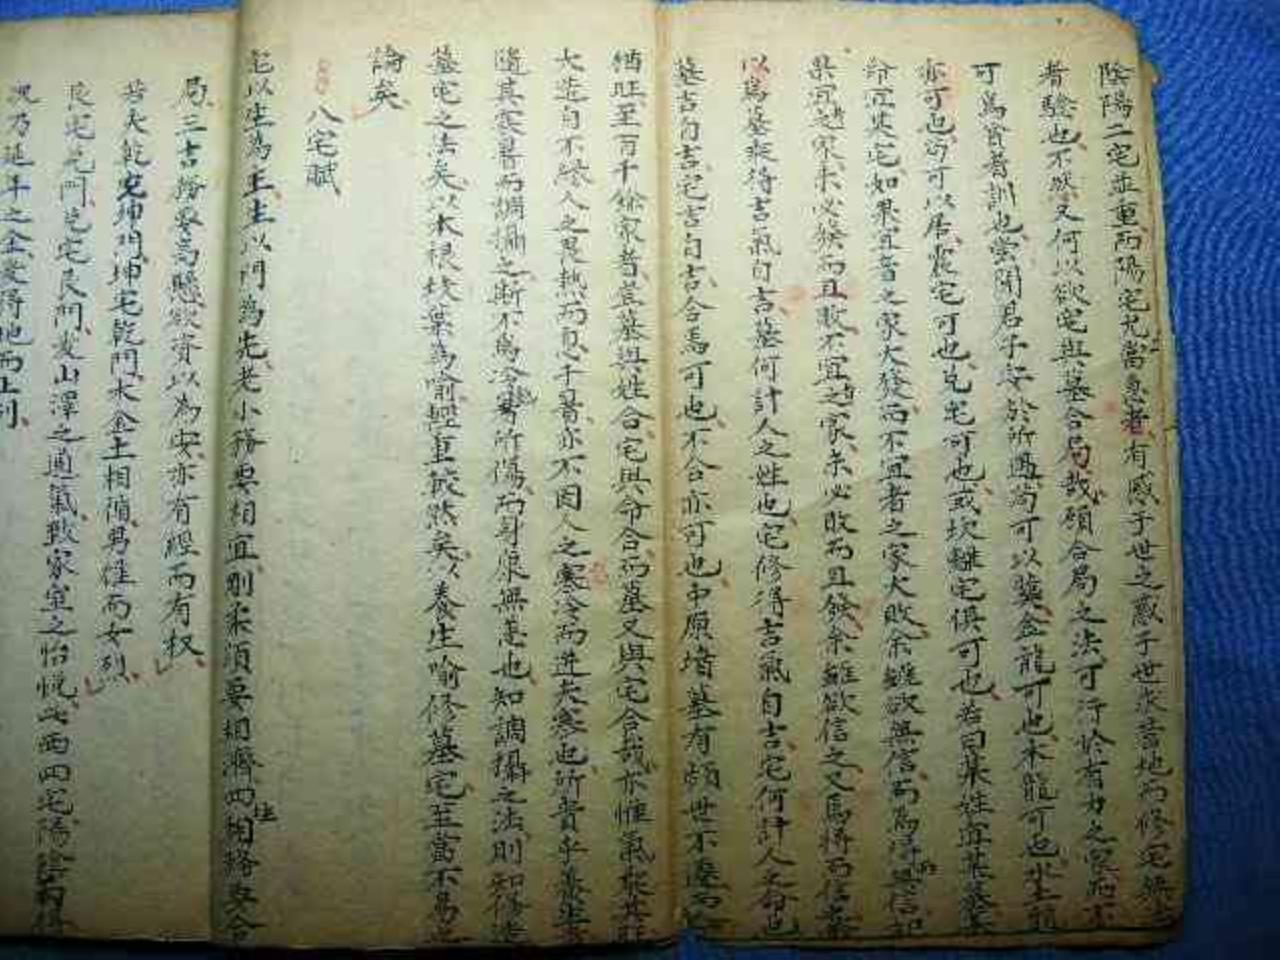 陰陽二宅並重而陽宅尤當急者有感于世之惑于世求吉地而修宅無
者驗也不然又何以欲宅與墓合局哉顧合局之法可行於有力之家而不
可為貧者訓也嘗聞君子安於所遇苟可以葬金龍可也木龍可也水土龍
亦可也苟可以居震宅可也兌宅可也或坎離宅俱可也若曰某姓宜某墓某
命宜某宅如果宜者之家大發而不宜者之家大敗余雖欲無信而焉得無信
果宜之家未必發而且敗不宜之家未必敗而且發余雖欲信之又焉得而信
以為墓擬得吉氣自吉墓何計人之姓也宅修得吉氣自吉宅何計人之命也
墓吉自吉宅吉自吉合焉可也不合亦可也中原堵墓有頗世不遷而
猶旺至百千餘家者豈墓與姓合宅與命合而墓又與宅合哉亦惟氣
大造自不緣人之畏熱而息于暑亦不因人之寒冷而進夫寒也所貴乎養生者
隨其寒暑而調攝之斯不為冷暑所傷而身康無恙也知調攝之法則知修造
墓宅之法矣以木根枝葉為喻輕重截然矣以養生喻修墓宅至當不易之
論矣
八宅賦
宅以生為主主以門為先老小務要相宜剛柔須要相濟四柱相絡要合
局三吉務要高懸欲資以為安亦有經而有权
若夫乾宅坤門坤宅乾門木金土相随男仕而女烈
艮宅兌門兌宅艮門爰山澤之通氣致家室之怡悅此西四宅陽陰兩
況乃延年之金爰得地而上列